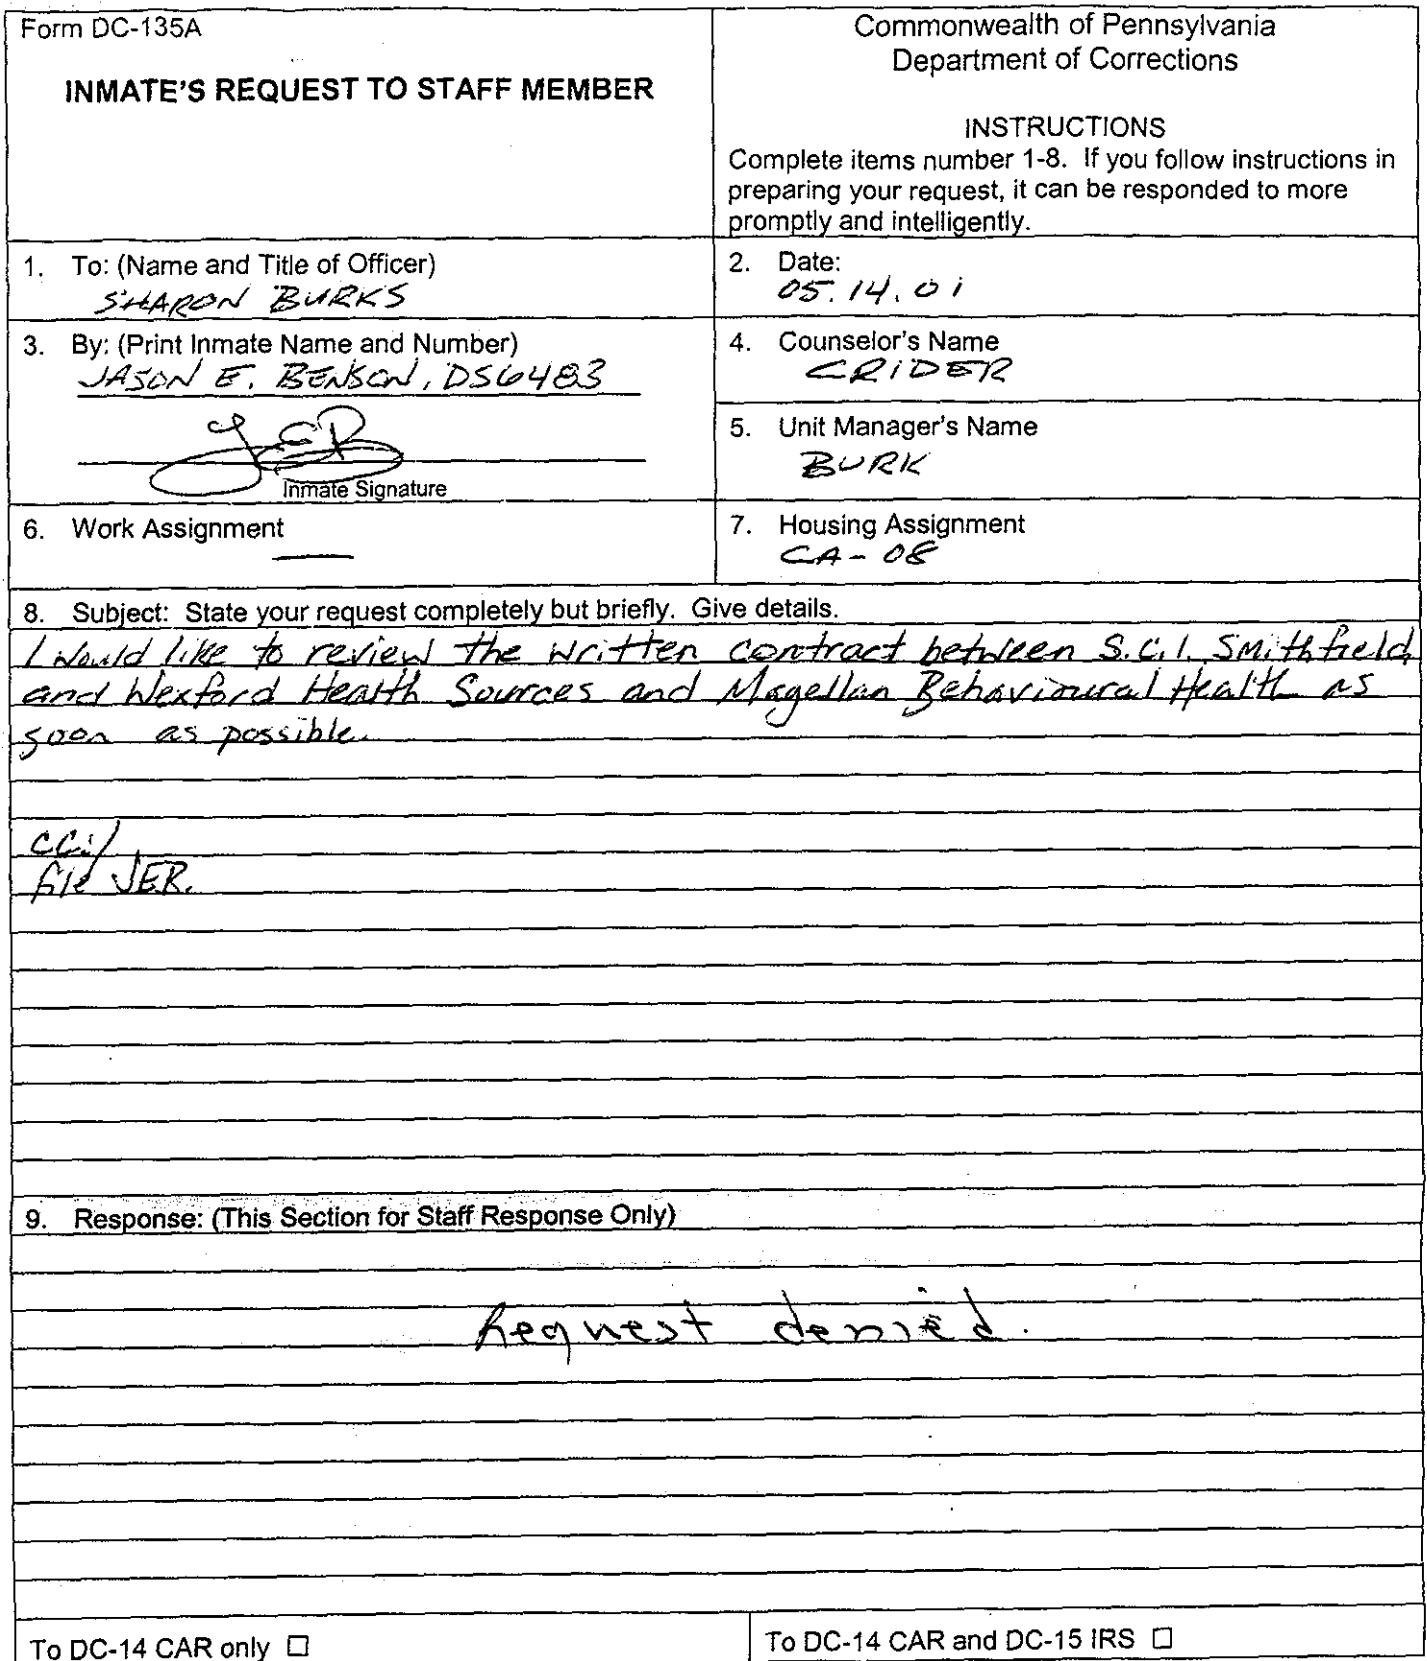 Form DC-135A
INMATE'S REQUEST TO STAFF MEMBER
Commonwealth of Pennsylvania
Department of Corrections
INSTRUCTIONS
Complete items number 1-8. If you follow instructions in
preparing your request, it can be responded to more
promptly and intelligently.
1. To: (Name and Title of Officer)
SHARON BURKS
2. Date:
05.14.01
3. By: (Print Inmate Name and Number)
JASON E. BENSON, DS6483
Inmate Signature
4. Counselor's Name
CRIDER
5. Unit Manager's Name
BURK
6. Work Assignment
7. Housing Assignment
CA-08
8. Subject: State your request completely but briefly. Give details.
I would like to review the written contract between S.C.I. Smithfield
and Wexford Health Sources and Magellan Behavioural Health as
soon as possible.
cc:/
file JEB.
9. Response: (This Section for Staff Response Only)
Request denied.
To DC-14 CAR only ☐
To DC-14 CAR and DC-15 IRS ☐